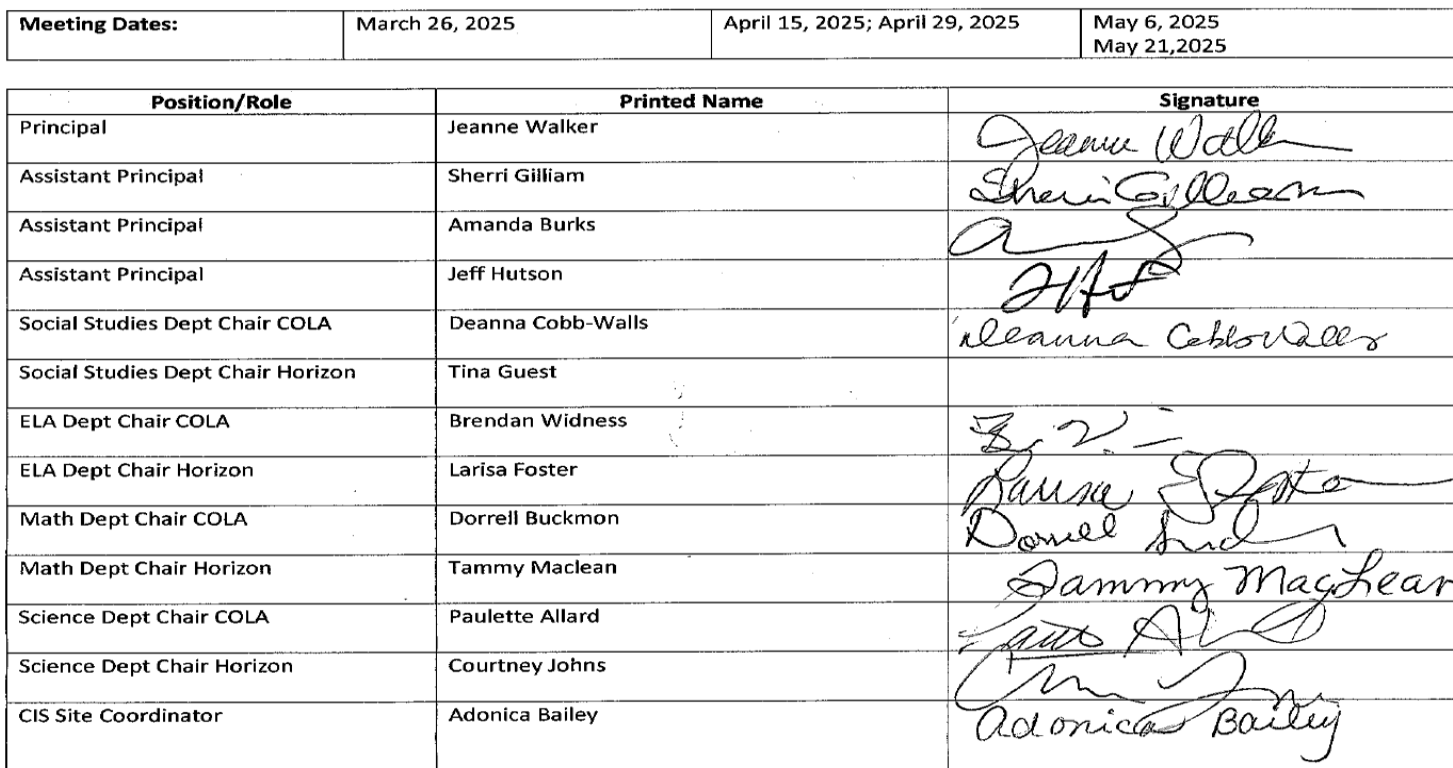 Meeting Dates: March 26, 2025 April 15, 2025; April 29, 2025 May 6, 2025
May 21,2025
Position/Role Printed Name Signature
Principal Jeanne Walker Jeanne Walker
Assistant Principal Sherri Gilliam Sherri Gilliam
Assistant Principal Amanda Burks
Assistant Principal Jeff Hutson
Social Studies Dept Chair COLA Deanna Cobb-Walls Deanna Cobb-Walls
Social Studies Dept Chair Horizon Tina Guest
ELA Dept Chair COLA Brendan Widness
ELA Dept Chair Horizon Larisa Foster Larisa Foster
Math Dept Chair COLA Dorrell Buckmon Dorrell
Math Dept Chair Horizon Tammy Maclean Tammy MacLean
Science Dept Chair COLA Paulette Allard
Science Dept Chair Horizon Courtney Johns
CIS Site Coordinator Adonica Bailey Adonica Bailey